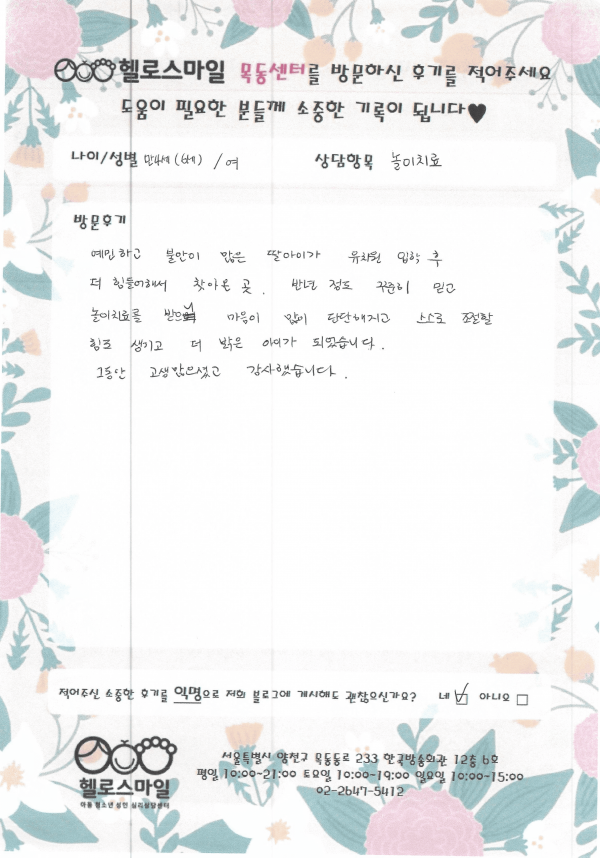 헬로스마일 목동센터를 방문하신 후기를 적어주세요
도움이 필요한 분들께 소중한 기록이 됩니다♥
나이/성별 만4세(6세) /여 상담항목 놀이치료
방문후기
예민하고 불안이 많은 딸아이가 유치원 입학 후
더 힘들어해서 찾아온 곳. 반년 정도 꾸준히 믿고
놀이치료를 받으니 마음이 많이 단단해지고 스스로 조절할
힘도 생기고 더 밝은 아이가 되었습니다.
그동안 고생많으셨고 감사했습니다.
적어주신 소중한 후기를 익명으로 저희 블로그에 게시해도 괜찮으신가요? 네 ☑ 아니오 □
헬로스마일
아동 청소년 성인 심리상담센터
서울특별시 양천구 목동동로 233 한국방송회관 12층 6호
평일 10:00~21:00 토요일 10:00~19:00 일요일 10:00~15:00
02-2647-5412